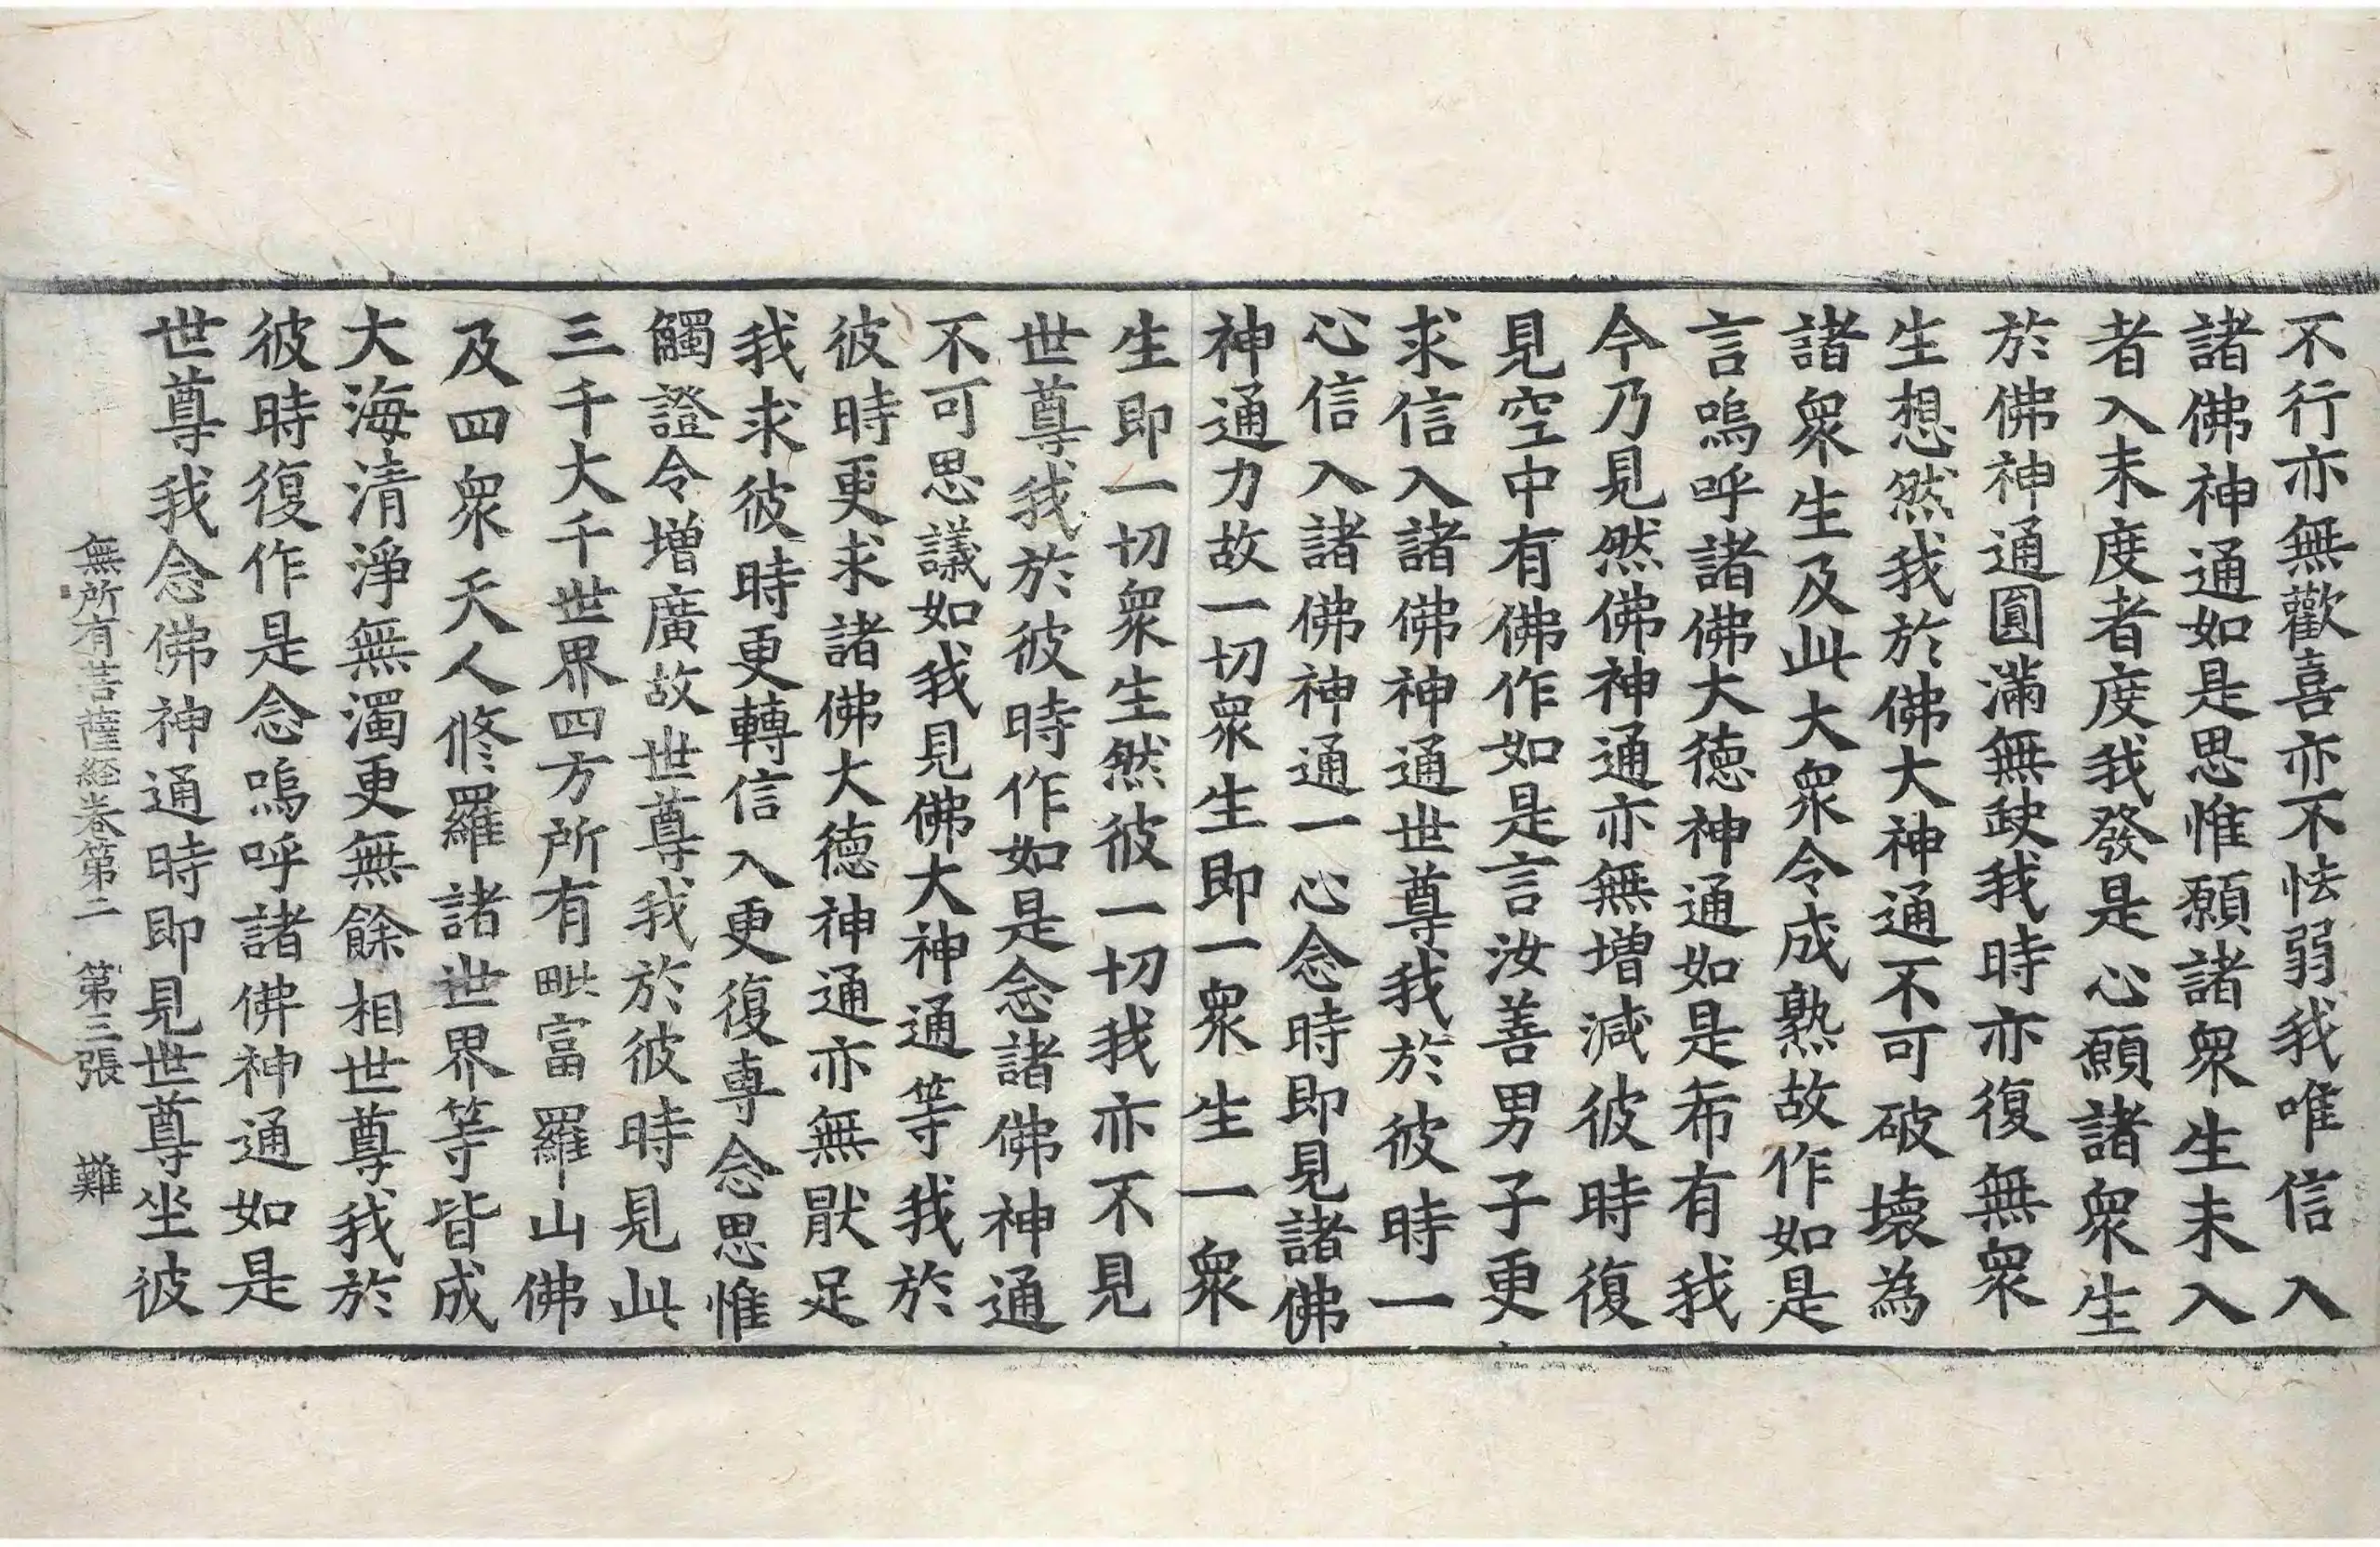 不行亦無歡喜亦不怯弱我唯信入
諸佛神通如是思惟願諸衆生未入
者入未度者度我發是心願諸衆生
於佛神通圓滿無缺我時亦復無衆
生想然我於佛大神通不可破壞為
諸衆生及此大衆令成熟故作如是
言嗚呼諸佛大德神通如是希有我
今乃見然佛神通亦無增減彼時復
見空中有佛作如是言汝善男子更
求信入諸佛神通世尊我於彼時一
心信入諸佛神通一心念時即見諸佛
神通力故一切衆生即一衆生一衆
生即一切衆生然彼一切我亦不見
世尊我於彼時作如是念諸佛神通
不可思議如我見佛大神通等我於
彼時更求諸佛大德神通亦無猒足
我求彼時更轉信入更復專念思惟
觸證令增廣故世尊我於彼時見此
三千大千世界四方所有毗富羅山佛
及四衆天人修羅諸世界等皆成
大海清淨無濁更無餘相世尊我於
彼時復作是念嗚呼諸佛神通如是
世尊我念佛神通時即見世尊坐彼
無所有菩薩経卷第二 第三張 難